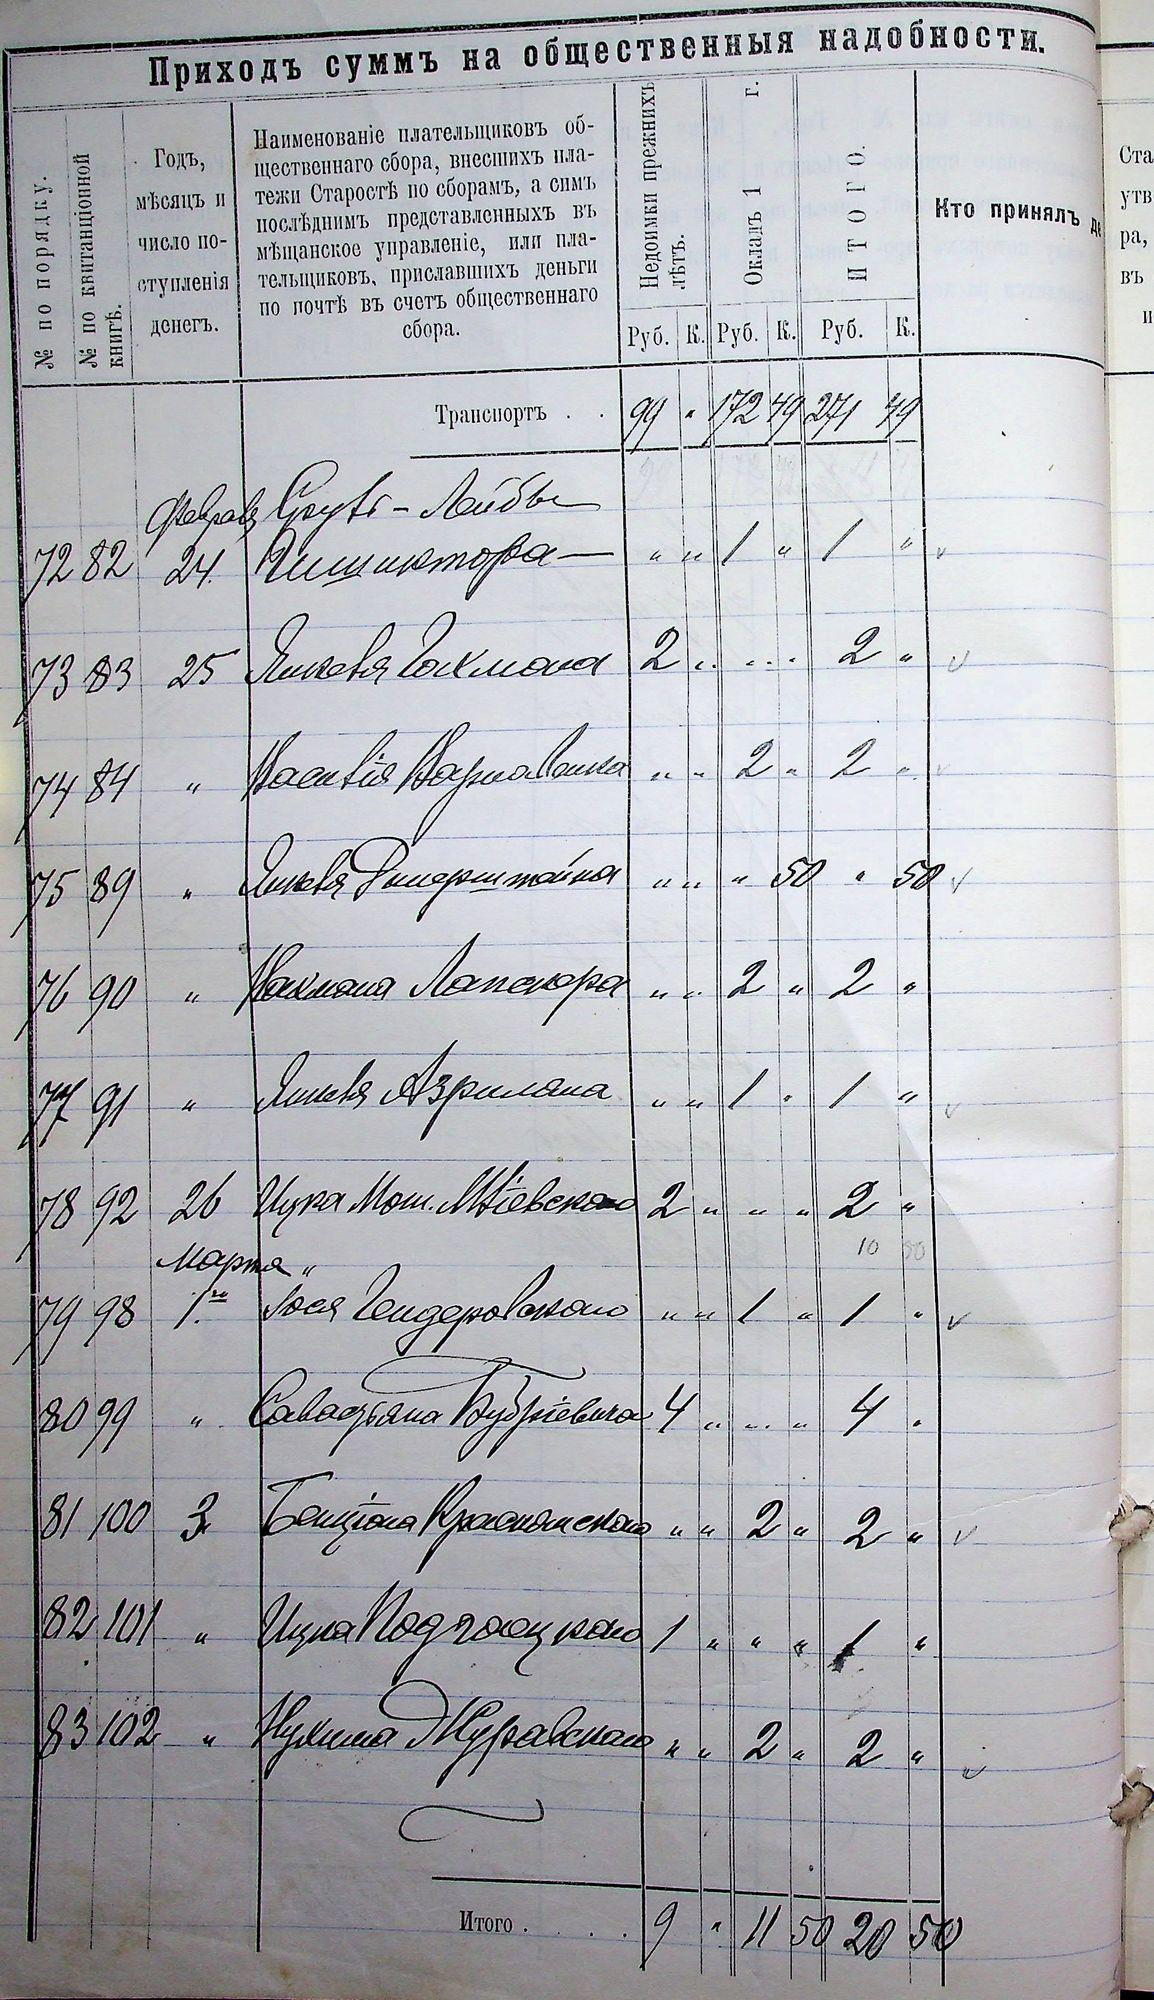 Приходъ суммъ на общественныя надобности.
№ по порядку.
№ по квитанціонной книгѣ.
Годъ,
мѣсяцъ и
число по-
ступленія
денегъ.
Наименованіе плательщиковъ об-
щественнаго сбора, внесшихъ пла-
тежи Старостѣ по сборамъ, а симъ
послѣднимъ представленныхъ въ
мѣщанское управленіе, или пла-
тельщиковъ, приславшихъ деньги
по почтѣ въ счетъ общественнаго
сбора.
Недоимки прежнихъ
лѣтъ.
Окладъ 1 г.
ИТОГО.
Руб. К. Руб. К. Руб. К.
Кто принялъ де
Ста
утв
ра,
въ
и
Транспортъ . . 99 " 172 49 271 49
Февраля Лейбы
72 82 24. " " 1 " 1 "
73 83 25 Янкеля Гохмана 2 " " " 2 "
74 84 " " " 2 " 2 "
75 89 " Янкеля " " " 50 " 50
76 90 " Нахмана " " 2 " 2 "
77 91 " Янкеля Азрилана " " 1 " 1 "
78 92 26 Ицка Мош. 2 " " " 2 "
10 50
Марта "
79 98 1го " " 1 " 1 "
80 99 " 4 " " " 4 "
81 100 3 Бенціона " " 2 " 2 "
82 101 " Ицка Подгаецкаго 1 " " " 1 "
83 102 " Нухима Журавскаго " " 2 " 2 "
Итого . . . . . 9 " 11 50 20 50